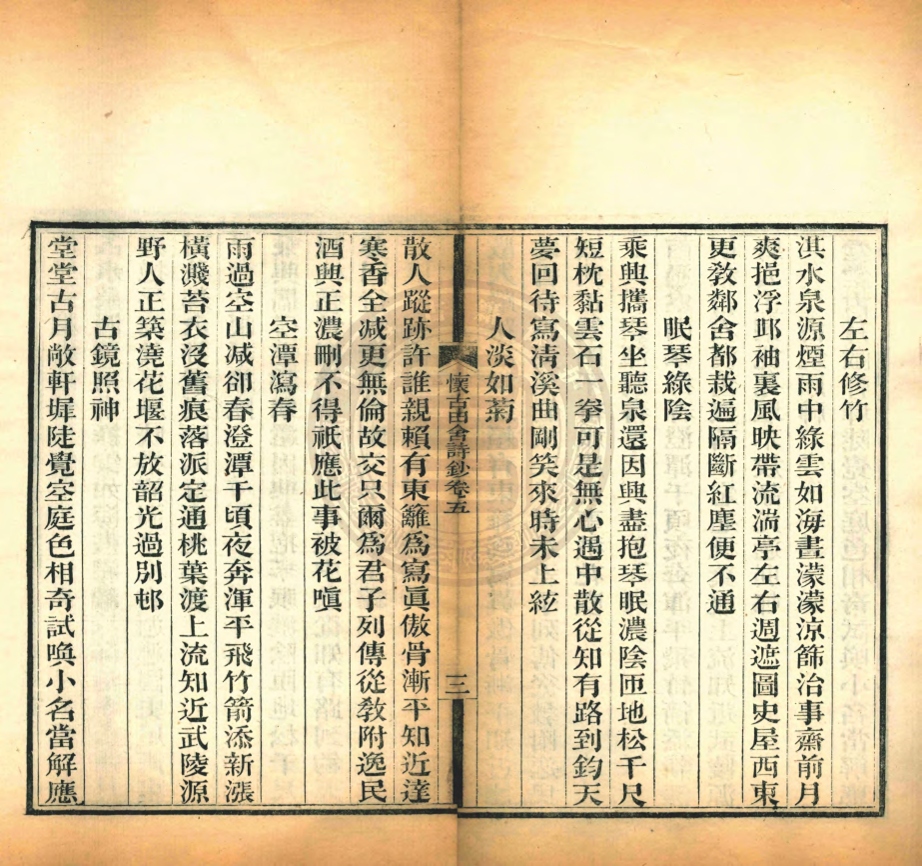 左右修竹
淇水泉源煙雨中綠雲如海晝濛濛涼篩治事齋前月
爽挹浮邱袖裏風映帶流湍亭左右週遮圖史屋西東
更敎鄰舍都栽遍隔斷紅塵便不通
眠琴綠陰
乘興攜琴坐聽泉還因興盡抱琴眠濃陰匝地松千尺
短枕黏雲石一拳可是無心遇中散從知有路到鈞天
夢回待寫淸溪曲剛笑來時未上絃
人淡如菊
懷古田舍詩鈔卷五
三
散人蹤跡許誰親賴有東籬爲寫眞傲骨漸平知近達
寒香全減更無倫故交只爾爲君子列傳從敎附逸民
酒興正濃刪不得祇應此事被花嗔
空潭瀉春
雨過空山減卻春澄潭千頃夜奔渾平飛竹箭添新漲
橫濺苔衣沒舊痕落派定通桃葉渡上流知近武陵源
野人正築澆花堰不放韶光過別邨
古鏡照神
堂堂古月敞軒墀陡覺空庭色相奇試喚小名當解應